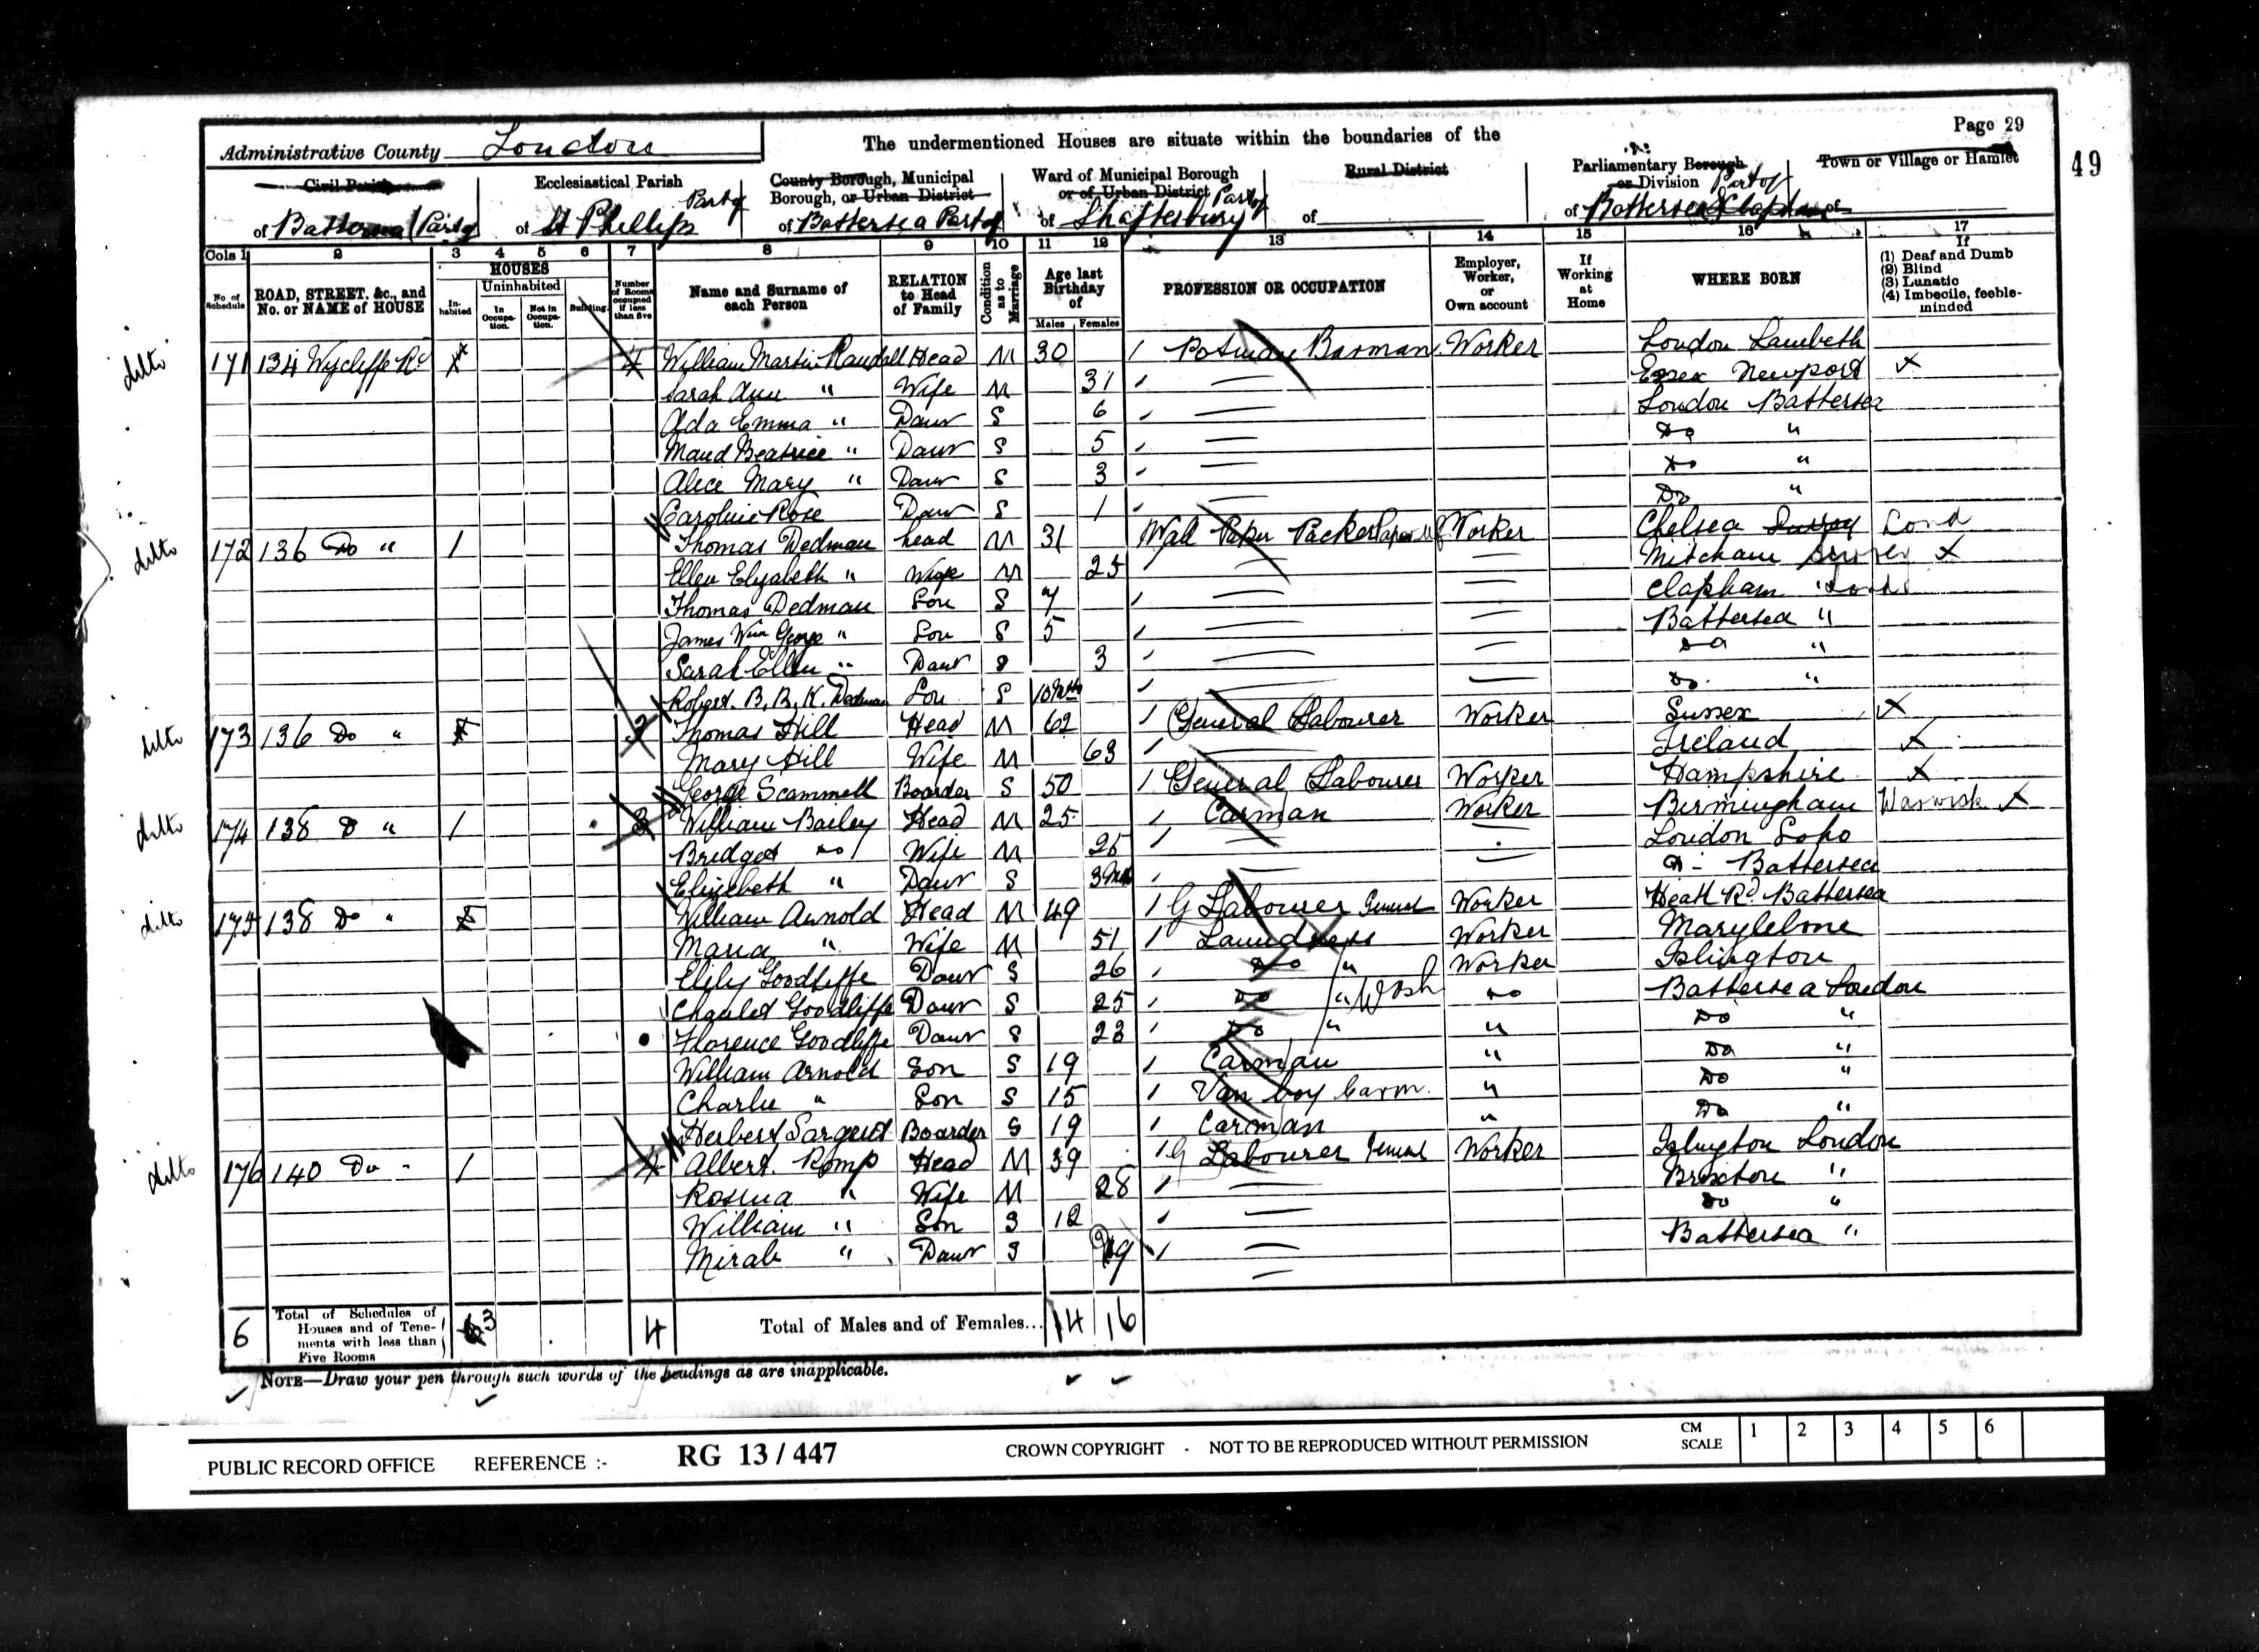 Page 29
49
Administrative County London
The undermentioned Houses are situate within the boundaries of the
Civil Parish of Battersea (Part of
Ecclesiastical Parish of St Phillips Part of
County Borough, Municipal Borough, or Urban District of Battersea Part of
Ward of Municipal Borough or of Urban District of Shaftesbury Part of
Rural District of
Parliamentary Borough or Division of Battersea & Clapham Part of
Town or Village or Hamlet of
Cols 1 2 3 4 5 6 7 8 9 10 11 12 13 14 15 16 17
No. of Schedule
ROAD, STREET, &c., and No. or NAME of HOUSE
HOUSES
Inhabited
Uninhabited
In Occupation.
Not in Occupation.
Building.
Number of Rooms occupied if less than five
Name and Surname of each Person
RELATION to Head of Family
Condition as to Marriage
Age last Birthday of
Males Females
PROFESSION OR OCCUPATION
Employer, Worker, or Own account
If Working at Home
WHERE BORN
If
(1) Deaf and Dumb
(2) Blind
(3) Lunatic
(4) Imbecile, feeble-minded
ditto 171 134 Wycliffe Rd 4 William Martin Randall Head M 30 Potman Barman Worker London Lambeth
Sarah Ann " Wife M 31 — Essex Newport X
Ada Emma " Daur S 6 — London Battersea
Maud Beatrice " Daur S 5 — Do "
Alice Mary " Daur S 3 — Do "
Caroline Rose Daur S 1 — Do "
ditto 172 136 Do " 1 Thomas Dedman head M 31 Wall Paper Packer Worker Chelsea Surrey Lond
Ellen Elizabeth " Wife M 25 — — Mitcham Surrey X
Thomas Dedman Son S 7 — — Clapham " Lond
James Wm George " Son S 5 — — Battersea "
Sarah Ellen " Daur S 3 — — Do "
Robert. B. B. K. Dedman Son S 10 Mths — — Do. "
ditto 173 136 Do " Thomas Hill Head M 62 General Labourer Worker Sussex X
Mary Hill Wife M 63 — Ireland X
George Scammell Boarder S 50 General Labourer Worker Hampshire X
ditto 174 138 D " 1 3 William Bailey Head M 25 Carman Worker Birmingham Warwick X
Bridget do Wife M — London Soho
Elizabeth " Daur S 3 Mths — — Battersea
ditto 175 138 Do " William Arnold Head M 49 G Labourer General Worker Heath Rd. Battersea
Maria " Wife M 51 Laundress Worker Marylebone
Goodliffe Daur S 26 Do " Worker Islington
Goodliffe Daur S 25 Do " Wash do Battersea London
Florence Goodliffe Daur S 23 Do " " Do "
William Arnold Son S 19 Carman " Do "
Charlie " Son S 15 Van boy Carm. " Do "
Herbert Sargent Boarder S 19 Carman " Do "
ditto 176 140 Do " 1 4 Albert. Romp Head M 39 G Labourer General Worker Islington London
Rosina " Wife M 28 — Brixton "
William " Son S 12 — Do "
" Daur S 9 — Battersea "
6 Total of Schedules of Houses and of Tenements with less than Five Rooms 3 4 Total of Males and of Females... 14 16
NOTE—Draw your pen through such words of the headings as are inapplicable.
PUBLIC RECORD OFFICE REFERENCE :- RG 13 / 447 CROWN COPYRIGHT - NOT TO BE REPRODUCED WITHOUT PERMISSION CM SCALE 1 2 3 4 5 6